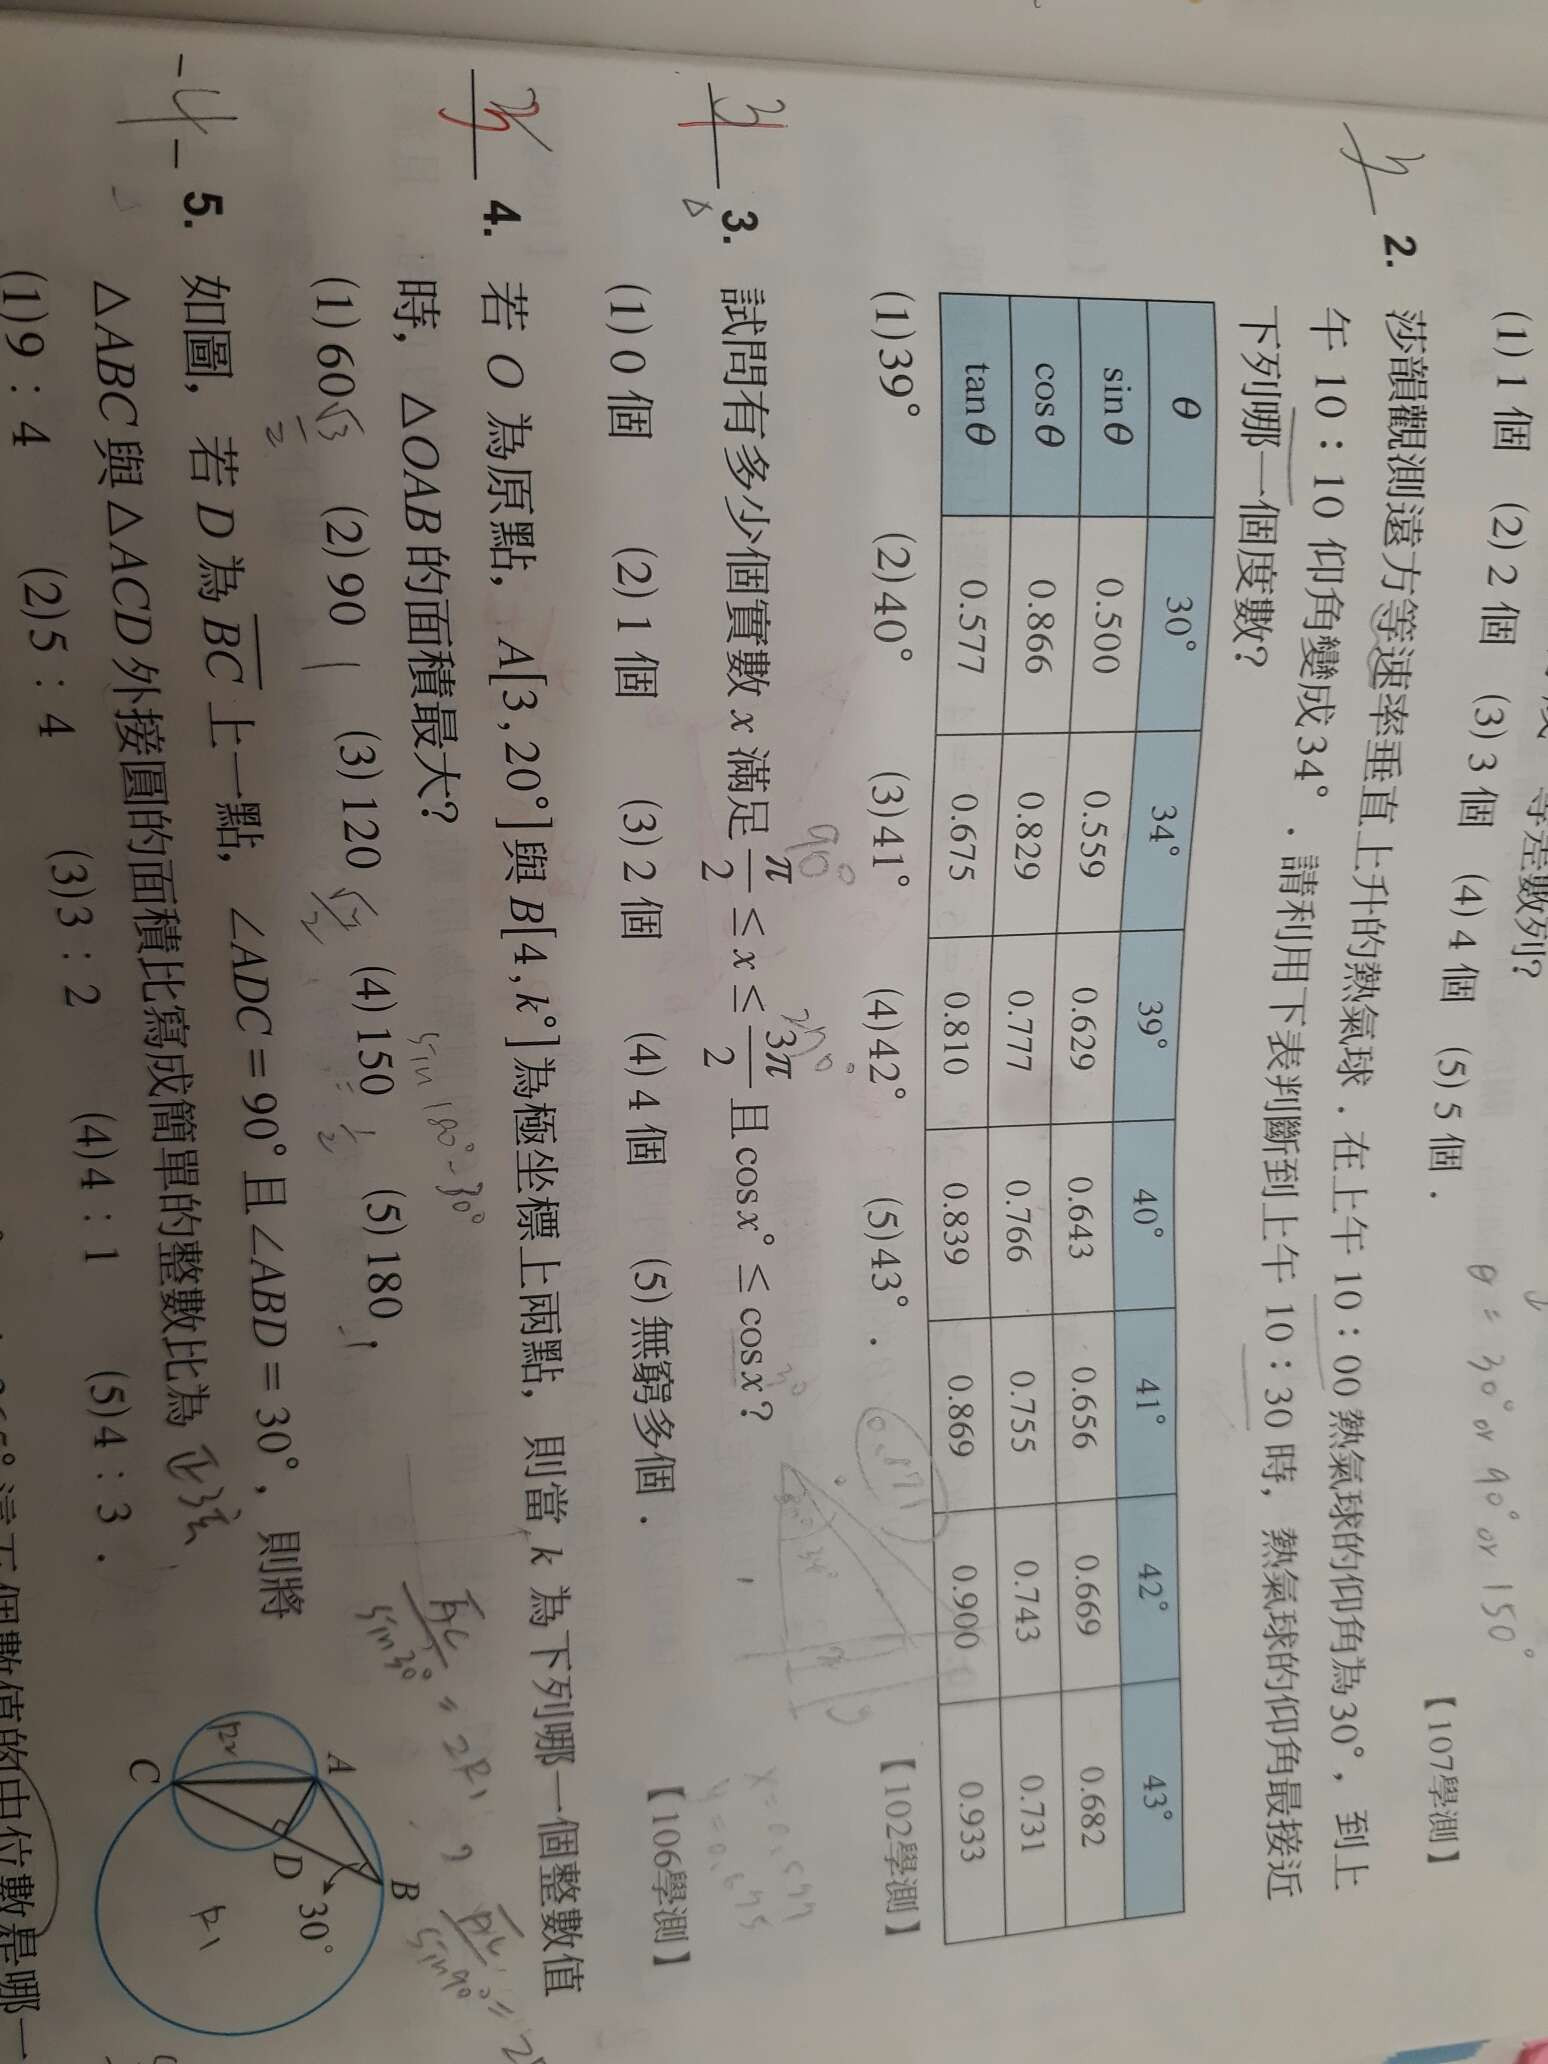 等差數列?
(1) 1 個 (2) 2 個 (3) 3 個 (4) 4 個 (5) 5 個.
【107學測】
θ = 30° or 90° or 150°
2. 莎韻觀測遠方等速率垂直上升的熱氣球.在上午 10:00 熱氣球的仰角為30°, 到上
午 10:10 仰角變成34°.請利用下表判斷到上午 10:30 時, 熱氣球的仰角最接近
下列哪一個度數?
θ 30° 34° 39° 40° 41° 42° 43°
sinθ 0.500 0.559 0.629 0.643 0.656 0.669 0.682
cosθ 0.866 0.829 0.777 0.766 0.755 0.743 0.731
tanθ 0.577 0.675 0.810 0.839 0.869 0.900 0.933
(1)39° (2)40° (3)41° (4)42° (5)43°.
【102學測】
90°
3. 試問有多少個實數 x 滿足 π/2 ≤ x ≤ 3π/2 且 cosx° ≤ cosx?
(1) 0 個 (2) 1 個 (3) 2 個 (4) 4 個 (5) 無窮多個.
【106學測】
4. 若 O 為原點, A[3, 20°]與 B[4, k°]為極坐標上兩點, 則當 k 為下列哪一個整數值
時, △OAB 的面積最大?
sin 180° - 30°
(1) 60 (2) 90 (3) 120 (4) 150 (5) 180.
√3/2 1 1/2
5. 如圖, 若 D 為 BC 上一點, ∠ADC = 90° 且∠ABD = 30°, 則將
△ABC 與△ACD 外接圓的面積比寫成簡單的整數比為 正弦
(1)9:4 (2)5:4 (3)3:2 (4)4:1 (5)4:3.
sin30° = 2R1
sin90° =
A
B
C
D
30°
R1
R2